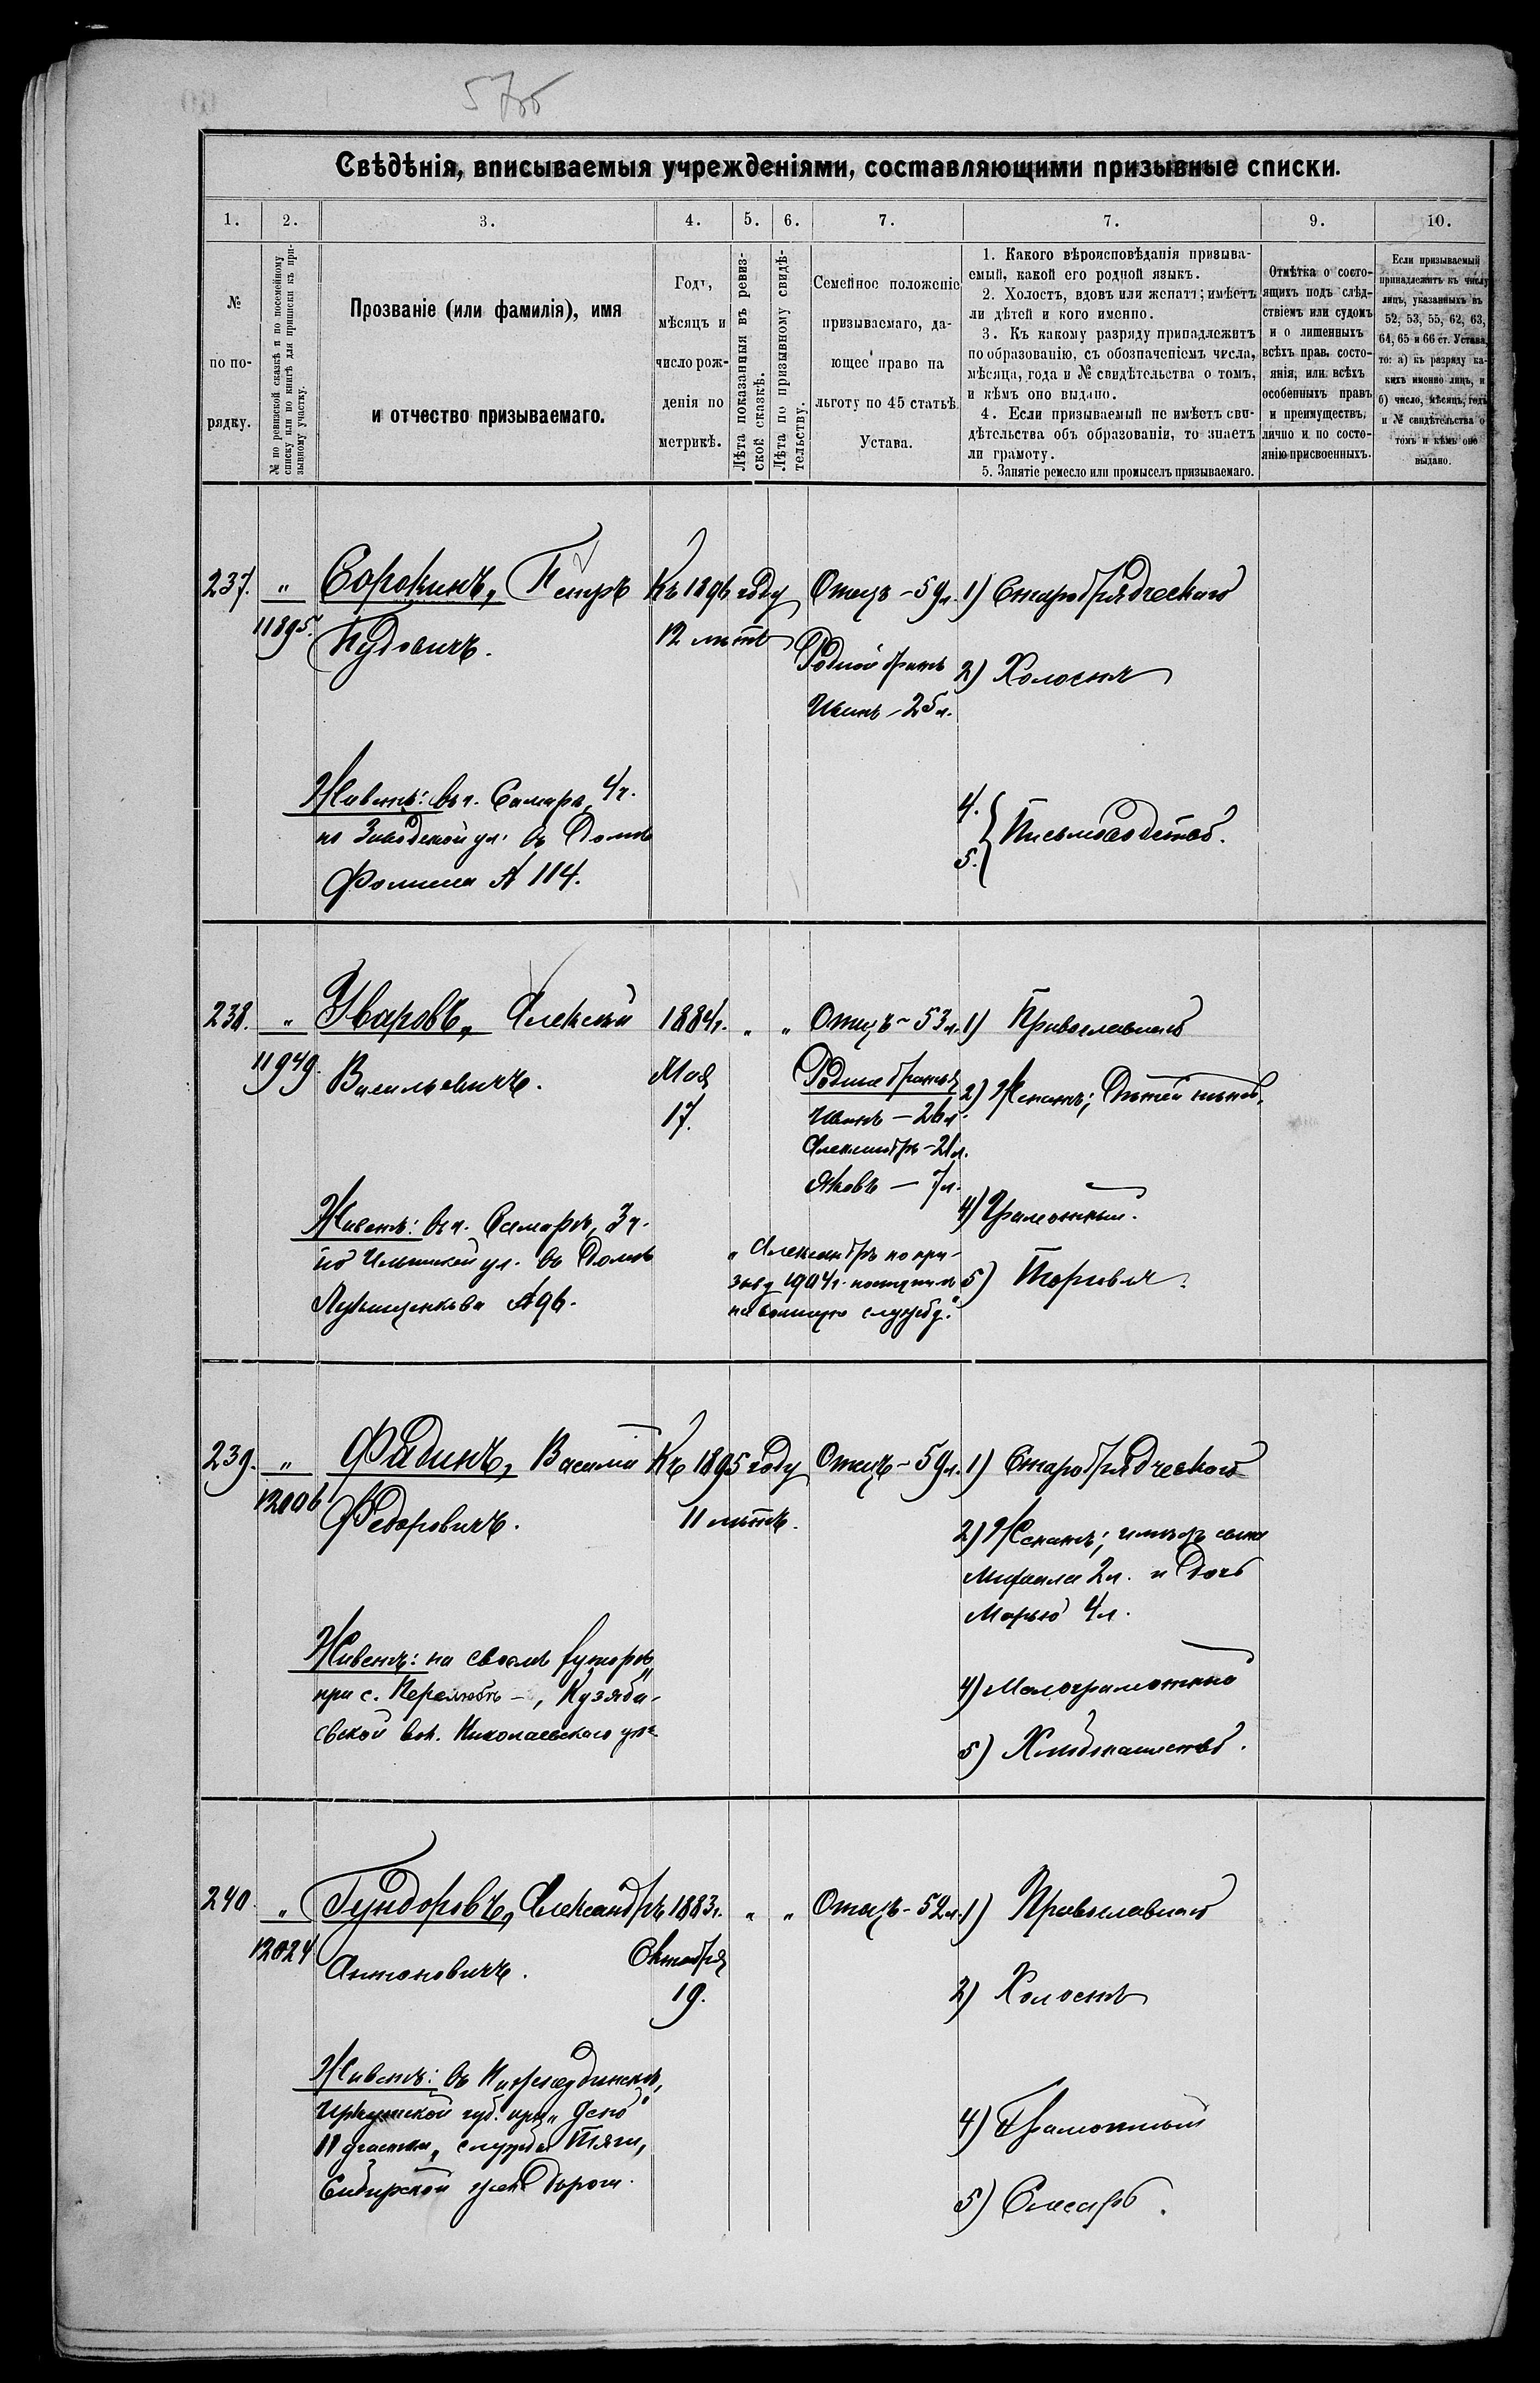 Свѣдѣнія, вписываемыя учрежденіями, составляющими призывные списки.
1. 2. 3. 4. 5. 6. 7. 7. 9. 10.
№
по по-
рядку.
№ по ревизской сказкѣ и по посемейному
списку или по книгѣ для приписки къ при-
зывному участку.
Прозваніе (или фамилія), имя
и отчество призываемаго.
Годъ,
мѣсяцъ и
число рож-
денія по
метрикѣ.
Лѣта показанныя въ ревиз-
ской сказкѣ.
Лѣта по призывному свидѣ-
тельству.
Семейное положеніе
призываемаго, да-
ющее право на
льготу по 45 статьѣ
Устава.
1. Какого вѣроисповѣданія призыва-
емый, какой его родной языкъ.
2. Холостъ, вдовъ или женатъ; имѣетъ
ли дѣтей и кого именно.
3. Къ какому разряду принадлежитъ
по образованію, съ обозначеніемъ числа,
мѣсяца, года и № свидѣтельства о томъ,
и кѣмъ оно выдано.
4. Если призываемый не имѣетъ сви-
дѣтельства объ образованіи, то знаетъ
ли грамоту.
5. Занятіе ремесло или промыселъ призываемаго.
Отмѣтка о состо-
ящихъ подъ слѣд-
ствіемъ или судомъ
и о лишенныхъ
всѣхъ прав. состо-
янія, или всѣхъ
особенныхъ правъ
и преимуществъ,
лично и по состо-
янію присвоенныхъ.
Если призываемый
принадлежитъ къ числу
лицъ, указанныхъ въ
52, 53, 55, 62, 63,
64, 65 и 66 ст. Устава,
то: а) къ разряду ка-
кихъ именно лицъ, и
б) число, мѣсяцъ, годъ
и № свидѣтельства о
томъ и кѣмъ оно
выдано.
237. " Сорокинъ, Петръ Къ 1896 году Отецъ - 59 л. 1) Старобрядческаго
11895. Пудовичъ. 12 лѣтъ
Родной братъ 2) Холостъ
Иванъ - 25 л.
Живетъ: въ г. Самарѣ, 4 ч.
по Заводской ул. въ домѣ
Фомина № 114.
4.
5. Письмоводство.
238. " Уваровъ, Алексѣй 1884 г. " " Отецъ - 53 л. 1) Православнаго
11949. Васильевичъ. Мая
17.
Родные братья
Иванъ - 26 л.
Александръ - 21 л.
Яковъ - 7 л.
2) Женатъ; дѣтей нѣтъ.
4) Грамотный.
Живетъ: въ г. Самарѣ, 3 ч.
по Ильинской ул. въ домѣ
№ 96.
"Александръ по при-
зыву 1904 г. поступилъ
на военную службу."
5) Торговля.
239. " Фадинъ, Василій Къ 1895 году Отецъ - 59 л. 1) Старобрядческаго
12006 Федоровичъ. 11 лѣтъ.
2) Женатъ; имѣетъ сына
Михаила 2 л. и дочь
Марью 4 л.
Живетъ: на своемъ хуторѣ,
при с. Перелюбѣ -, Кузяба-
евской вол. Николаевскаго уѣз.
4) Малограмотный
5) Хлѣбопашество.
240. " Гундоровъ, Александръ 1883 г. " " Отецъ - 52 л. 1) Православнаго
12024 Антоновичъ. Октября
19.
2) Холостъ
Живетъ: въ Нижнеудинскѣ,
Иркутской губ. при "депо"
11 участка, службы Тяги,
Сибирской жел. дороги.
4) Грамотный
5) Слесарь.